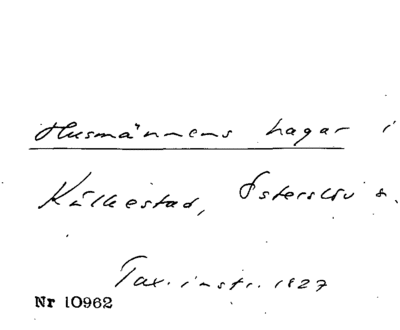 Husmännens hagar i
Källestad, Österslöv s.
Tax. instr. 1827
Nr 10962